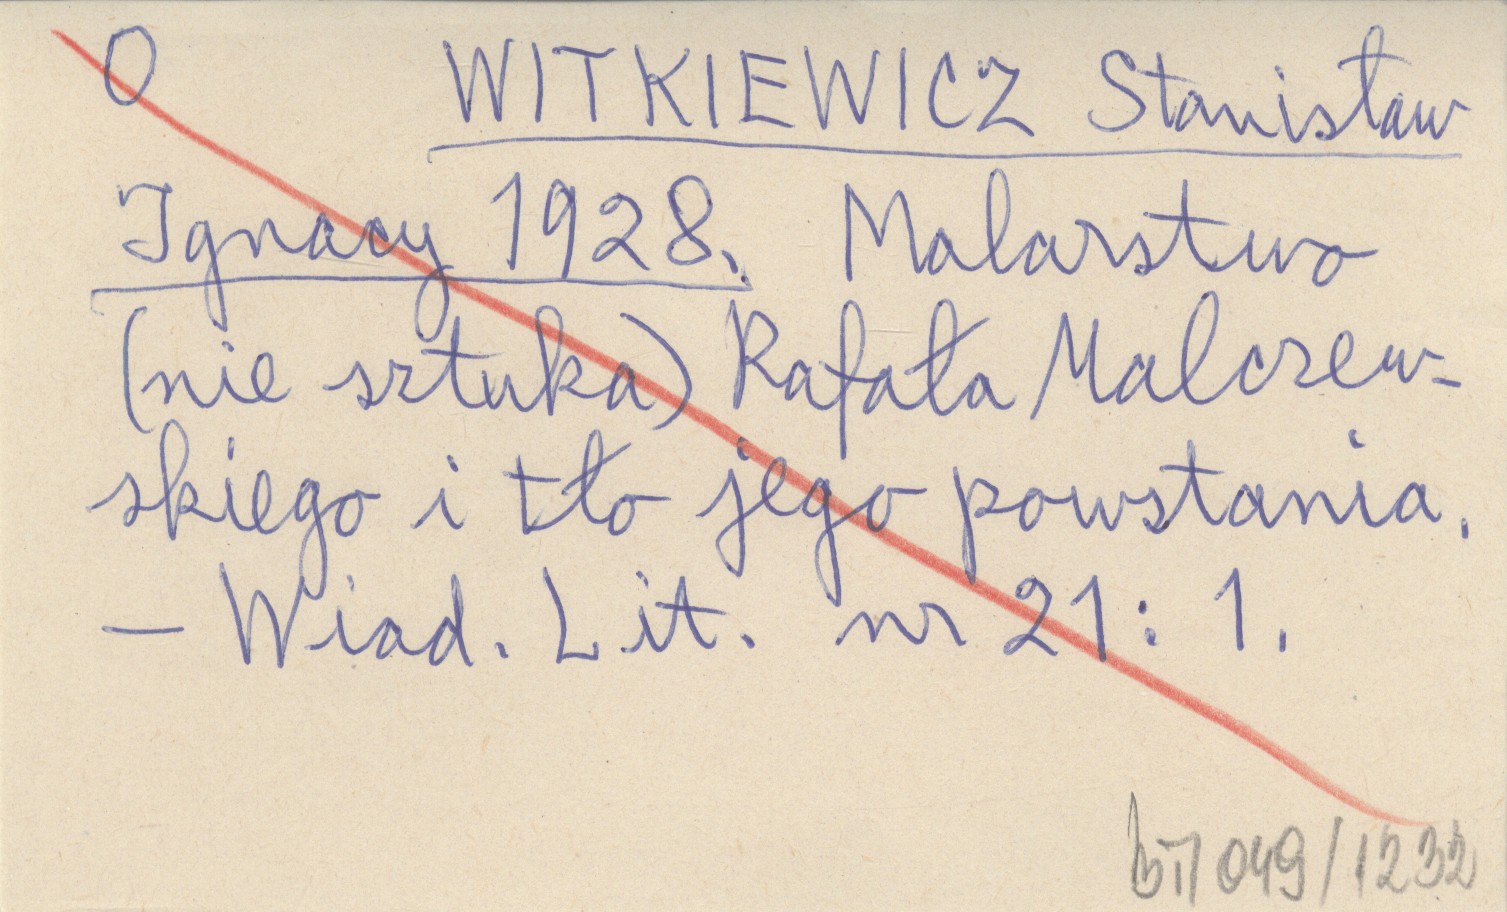 O WITKIEWICZ Stanisław
Ignacy 1928. Malarstwo
(nie sztuka) Rafała Malczew-
skiego i tło jego powstania.
– Wiad. Lit. nr 21: 1.
049/1232